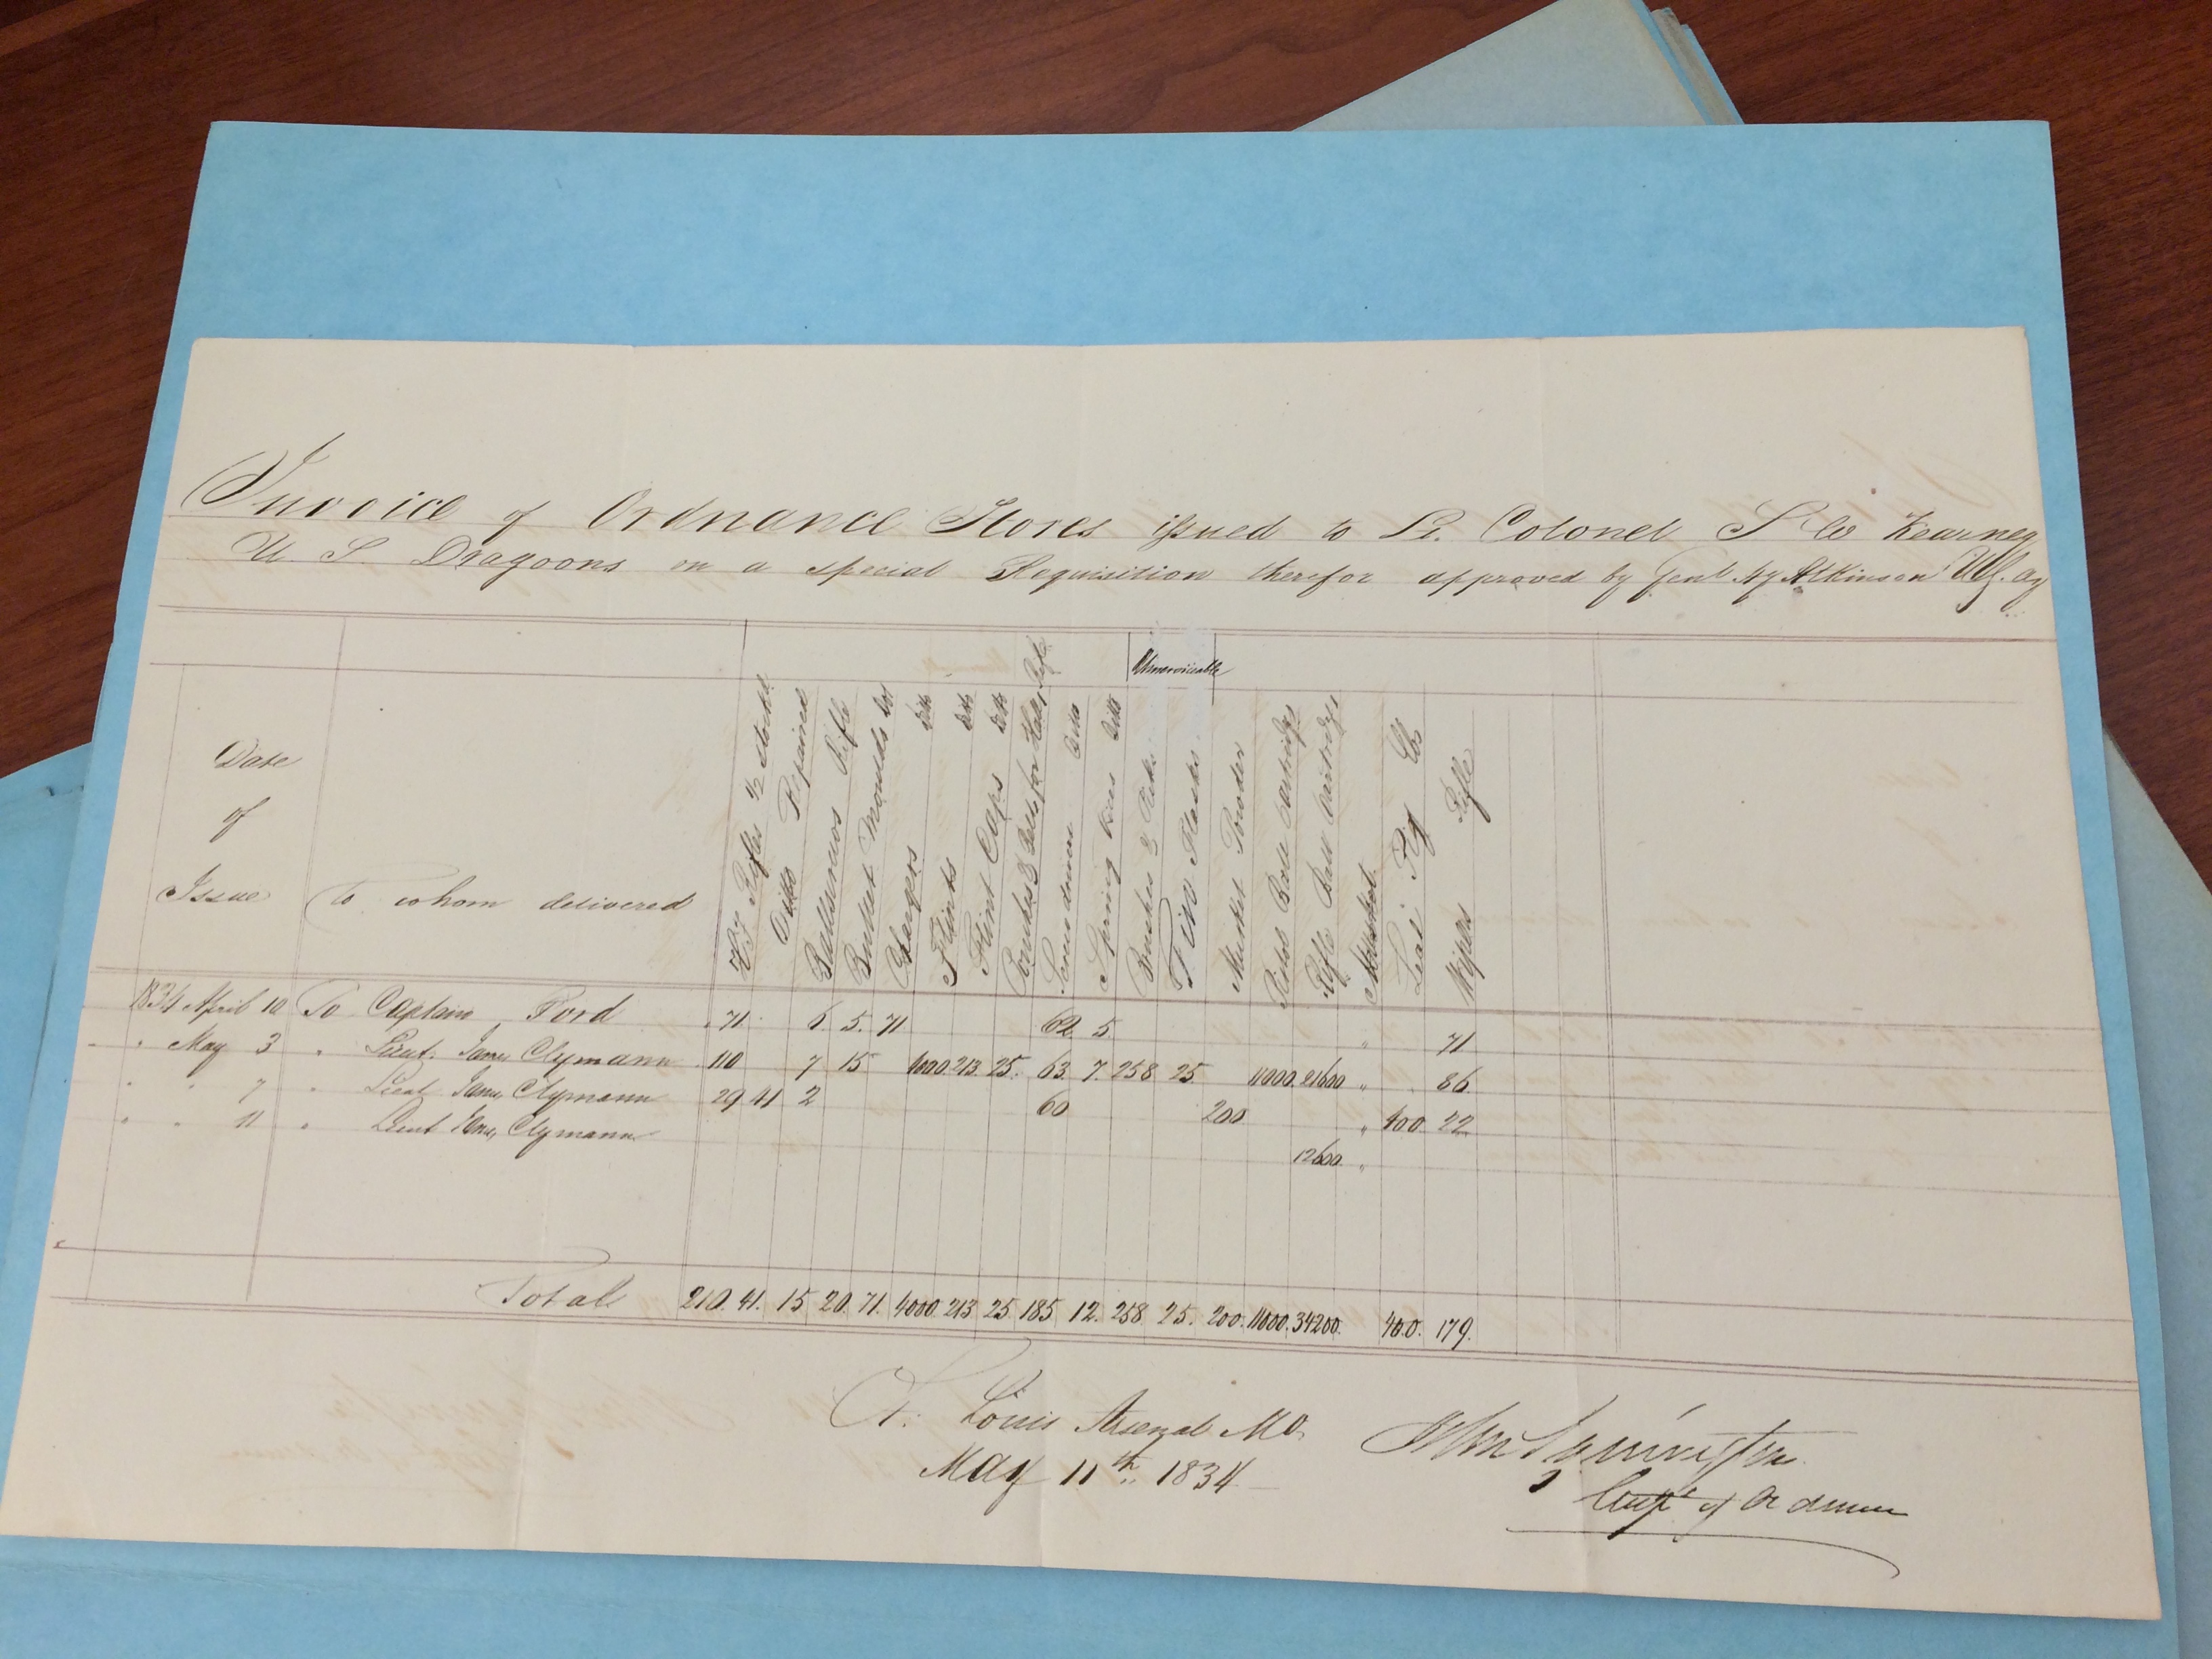 Invoice of Ordnance Stores issued to Lt. Colonel S W Kearney
U. S. Dragoons on a special Requisition therefor approved by Genl Hy Atkinson U.S. Ay
Unserviceable
Date
of
Issue
To whom delivered
Rifles 1/2 stocked
Ditto Repaired
Ballscrews Rifle
Bullet Moulds Do
Chargers Ditto
Flints Ditto
Flint Caps Ditto
for Halls Rifle
Screwdrivers Ditto
Spring vices Ditto
Brushes & Picks
Tin Flasks
Musket Powder
Pistol Ball Cartridges
Rifle Ball Cartridges
Lead Pig lbs
Wipers Rifle
1834 April 10 To Captain Ford 71 6 5. 71 62 5. " 71
" May 3 " Lieut. James Clymann 110 7 15 4000 213 25. 63 7. 258 25 11000 21600 " 86
" " 7 " Lieut James Clymann 29 41 2 60 200 " 400 22
" " 11 " Lieut James Clymann 12600 "
Total 210. 41. 15 20. 71. 4000 213 25 185 12. 258 25. 200. 11000. 34200. 400. 179.
St. Louis Arsenal Mo.
May 11th 1834
Supt of Ordnance